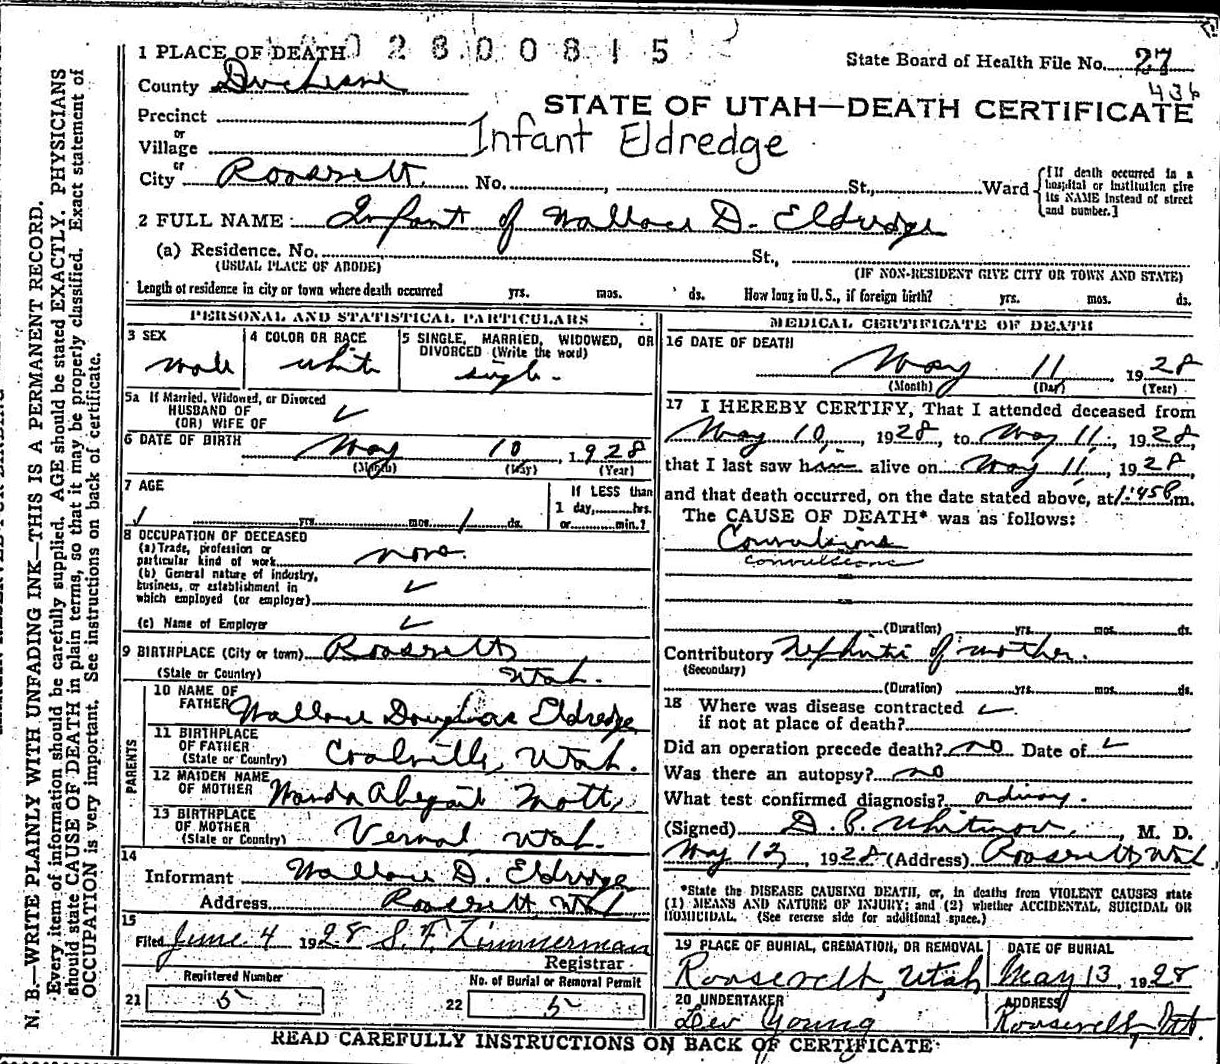 028.00815
1 PLACE OF DEATH
State Board of Health File No. 27
436
County Duchesne
STATE OF UTAH—DEATH CERTIFICATE
Precinct
or
Village
Infant Eldredge
or
City Roosevelt No. , St., Ward
{If death occurred in a hospital or institution give its NAME instead of street and number.]
2 FULL NAME Infant of Wallace D. Eldredge
(a) Residence. No. St.,
(USUAL PLACE OF ABODE) (IF NON-RESIDENT GIVE CITY OR TOWN AND STATE)
Length of residence in city or town where death occurred yrs. mos. ds. How long in U.S., if foreign birth? yrs. mos. ds.
PERSONAL AND STATISTICAL PARTICULARS
3 SEX
male
4 COLOR OR RACE
white
5 SINGLE, MARRIED, WIDOWED, OR
DIVORCED (Write the word)
single
5a If Married, Widowed, or Divorced
HUSBAND OF
(OR) WIFE OF
6 DATE OF BIRTH
May 10, 1928
(Month) (Day) (Year)
7 AGE
yrs. mos. 1 ds.
If LESS than
1 day, hrs.
or min.?
8 OCCUPATION OF DECEASED
(a) Trade, profession or
particular kind of work none.
(b) General nature of industry,
business, or establishment in
which employed (or employer)
(c) Name of Employer
9 BIRTHPLACE (City or town) Roosevelt
(State or Country) Utah.
PARENTS
10 NAME OF
FATHER Wallace Douglas Eldredge
11 BIRTHPLACE
OF FATHER
(State or Country) Coalville, Utah.
12 MAIDEN NAME
OF MOTHER Wanda Abegail Mott
13 BIRTHPLACE
OF MOTHER
(State or Country) Vernal Utah.
14
Informant Wallace D. Eldredge
Address Roosevelt Utah
15
Filed June 4 1928 S. F. Zimmerman
Registrar.
Registered Number
21 5
No. of Burial or Removal Permit
22 5
MEDICAL CERTIFICATE OF DEATH
16 DATE OF DEATH
May 11, 1928
(Month) (Day) (Year)
17 I HEREBY CERTIFY, That I attended deceased from
May 10, 1928, to May 11, 1928,
that I last saw him alive on May 11, 1928,
and that death occurred, on the date stated above, at 1:45 P m.
The CAUSE OF DEATH* was as follows:
Convulsions
convulsions
(Duration) yrs. mos. ds.
Contributory Nephritis of mother.
(Secondary)
(Duration) yrs. mos. ds.
18 Where was disease contracted
if not at place of death?
Did an operation precede death? no Date of
Was there an autopsy? no
What test confirmed diagnosis? ordinary.
(Signed) D. P. Whitmore, M. D.
May 12, 1928 (Address) Roosevelt Utah
*State the DISEASE CAUSING DEATH, or, in deaths from VIOLENT CAUSES state
(1) MEANS AND NATURE OF INJURY; and (2) whether ACCIDENTAL, SUICIDAL OR
HOMICIDAL. (See reverse side for additional space.)
19 PLACE OF BURIAL, CREMATION, OR REMOVAL
Roosevelt, Utah
DATE OF BURIAL
May 13, 1928
20 UNDERTAKER
Lev Young
ADDRESS
Roosevelt, Utah
READ CAREFULLY INSTRUCTIONS ON BACK OF CERTIFICATE
N. B.—WRITE PLAINLY WITH UNFADING INK—THIS IS A PERMANENT RECORD.
Every item of information should be carefully supplied. AGE should be stated EXACTLY. PHYSICIANS
should state CAUSE OF DEATH in plain terms, so that it may be properly classified. Exact statement of
OCCUPATION is very important. See instructions on back of certificate.